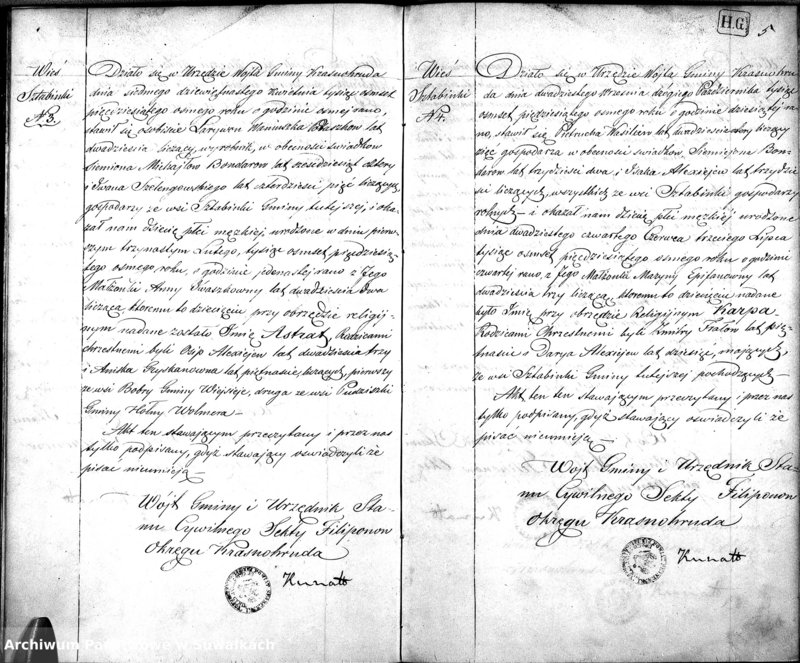 Wieś
Sztabinki
N 3.
Działo się w Urzędzie Wójta Gminy Krasnobruda
dnia siódmego dziewiętnastego Kwietnia tysiąc osmset
pięcdziesiątego osmego roku o godzinie osmej rano,
stawił się osobiście Larywn lat
dwadzieścia liczący, wyrobnik, w obecności świadków
Siemiona Michajłow Bondarow lat sześćdziesiąt cztery
i Iwana Szelengowskiego lat czterdzieści pięć liczących,
gospodarzy ze wsi Sztabinki Gminy tutejszej, i oka-
zał nam dziecię płci męzkiej, urodzone w dniu pierw-
szym trzynastym Lutego, tysiąc osmset pięcdziesią-
tego osmego roku, o godzinie jedenastej rano z Jego
Małżonki Anny Iwaszkowny lat dwadzieścia dwa
licząca, któremu to dziecięciu przy obrzędzie religij-
nym nadane zostało Imię Astrat, Rodzicami
chrzestnemi byli Osip Alexiejew lat dwadzieścia trzy
i Aniska lat piętnaście, liczących, pierwszy
ze wsi Bobry Gminy Wiejsieje, druga ze wsi Pudziszki
Gminy Hołny Wolmera —
Akt ten stawającym przeczytany i przez nas
tylko podpisany, gdyż stawający oświadczyli że
pisać nieumieją —
Wójt Gminy i Urzędnik Sta-
nu Cywilnego Sekty Filiponow
Okręgu Krasnobruda
Kunatt
H.G.
5
Wieś
Sztabinki
N 4.
Działo się w Urzędzie Wójta Gminy Krasnobru-
da dnia dwudziestego Września drugiego Października tysiąc
osmset pięćdziesiątego osmego roku o godzinie dziesiątej ra-
no, stawił się Pietrucha Wasiliew lat dwadzieścia liczący
pięć gospodarza w obecności świadków, Siemiejona Bon-
darow lat trzydzieści dwa, i Isaka Alexiejew lat trzydzie-
ści liczących, wszystkich ze wsi Sztabinki gospodarzy
rolnych — i okazał nam dziecię płci męzkiej urodzone
dnia dwudziestego czwartego Czerwca trzeciego Lipca
tysiąc osmset pięcdziesiątego osmego roku o godzinie
czwartej rano, z Jego Małżonki Maryny Epifanowny lat
dwadzieścia trzy licząca, któremu to dziecięciu nadane
było Imię przy obrzędzie Religijnym Karpa —
Rodzicami Chrzestnemi byli Dmitry lat pięt-
naście i Darya Alexiejew lat dziesięć, mających,
ze wsi Sztabinki Gminy tutejszej pochodzących —
Akt ten ten stawającym przeczytany i przez nas
tylko podpisany, gdyż stawający oświadczyli że
pisać nieumieją —
Wójt Gminy i Urzędnik Sta-
nu Cywilnego Sekty Filiponow
Okręgu Krasnobruda
Kunatt
Archiwum Państwowe w Suwałkach